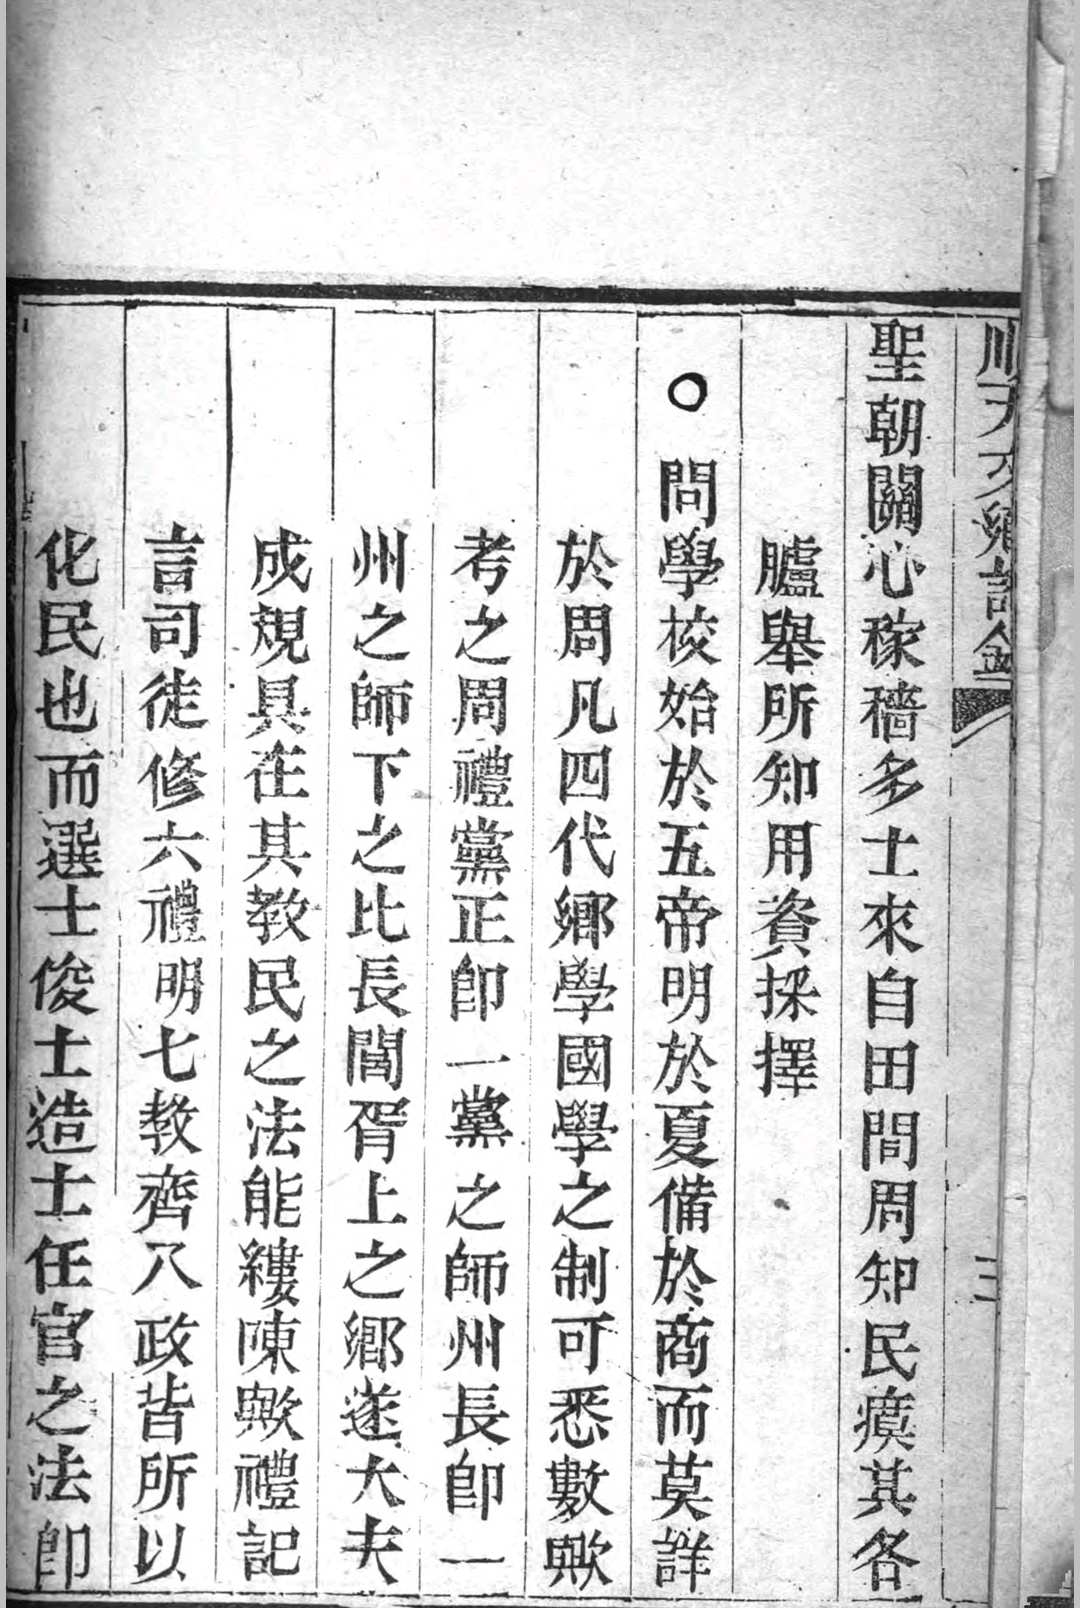 順天文鄉試錄
三
聖朝關心稼穡多士來自田間周知民瘼其各
臚舉所知用資採擇
○問學校始於五帝明於夏備於商而莫詳
於周凡四代鄉學國學之制可悉數歟
考之周禮黨正卽一黨之師州長卽一
州之師下之比長閭胥上之鄉遂大夫
成規具在其教民之法能縷陳歟禮記
言司徒修六禮明七教齊八政皆所以
化民也而選士俊士造士任官之法卽